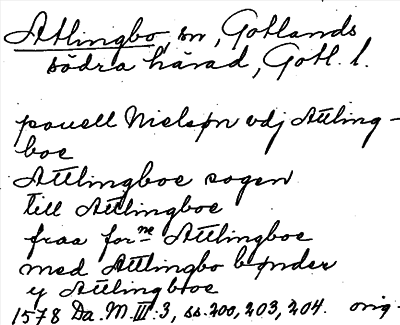 Atlingbo, sn, Gotlands
södra härad, Gotl. l.
pouell Nielsøn vdj Attling-
boe
Attlingboe sogen
till Attlingboe
fraa for ne Attlingboe
med Attlingbo bønder
y Attlingboe
1578 Da. M. III: 3, ss. 200, 203, 204. orig.